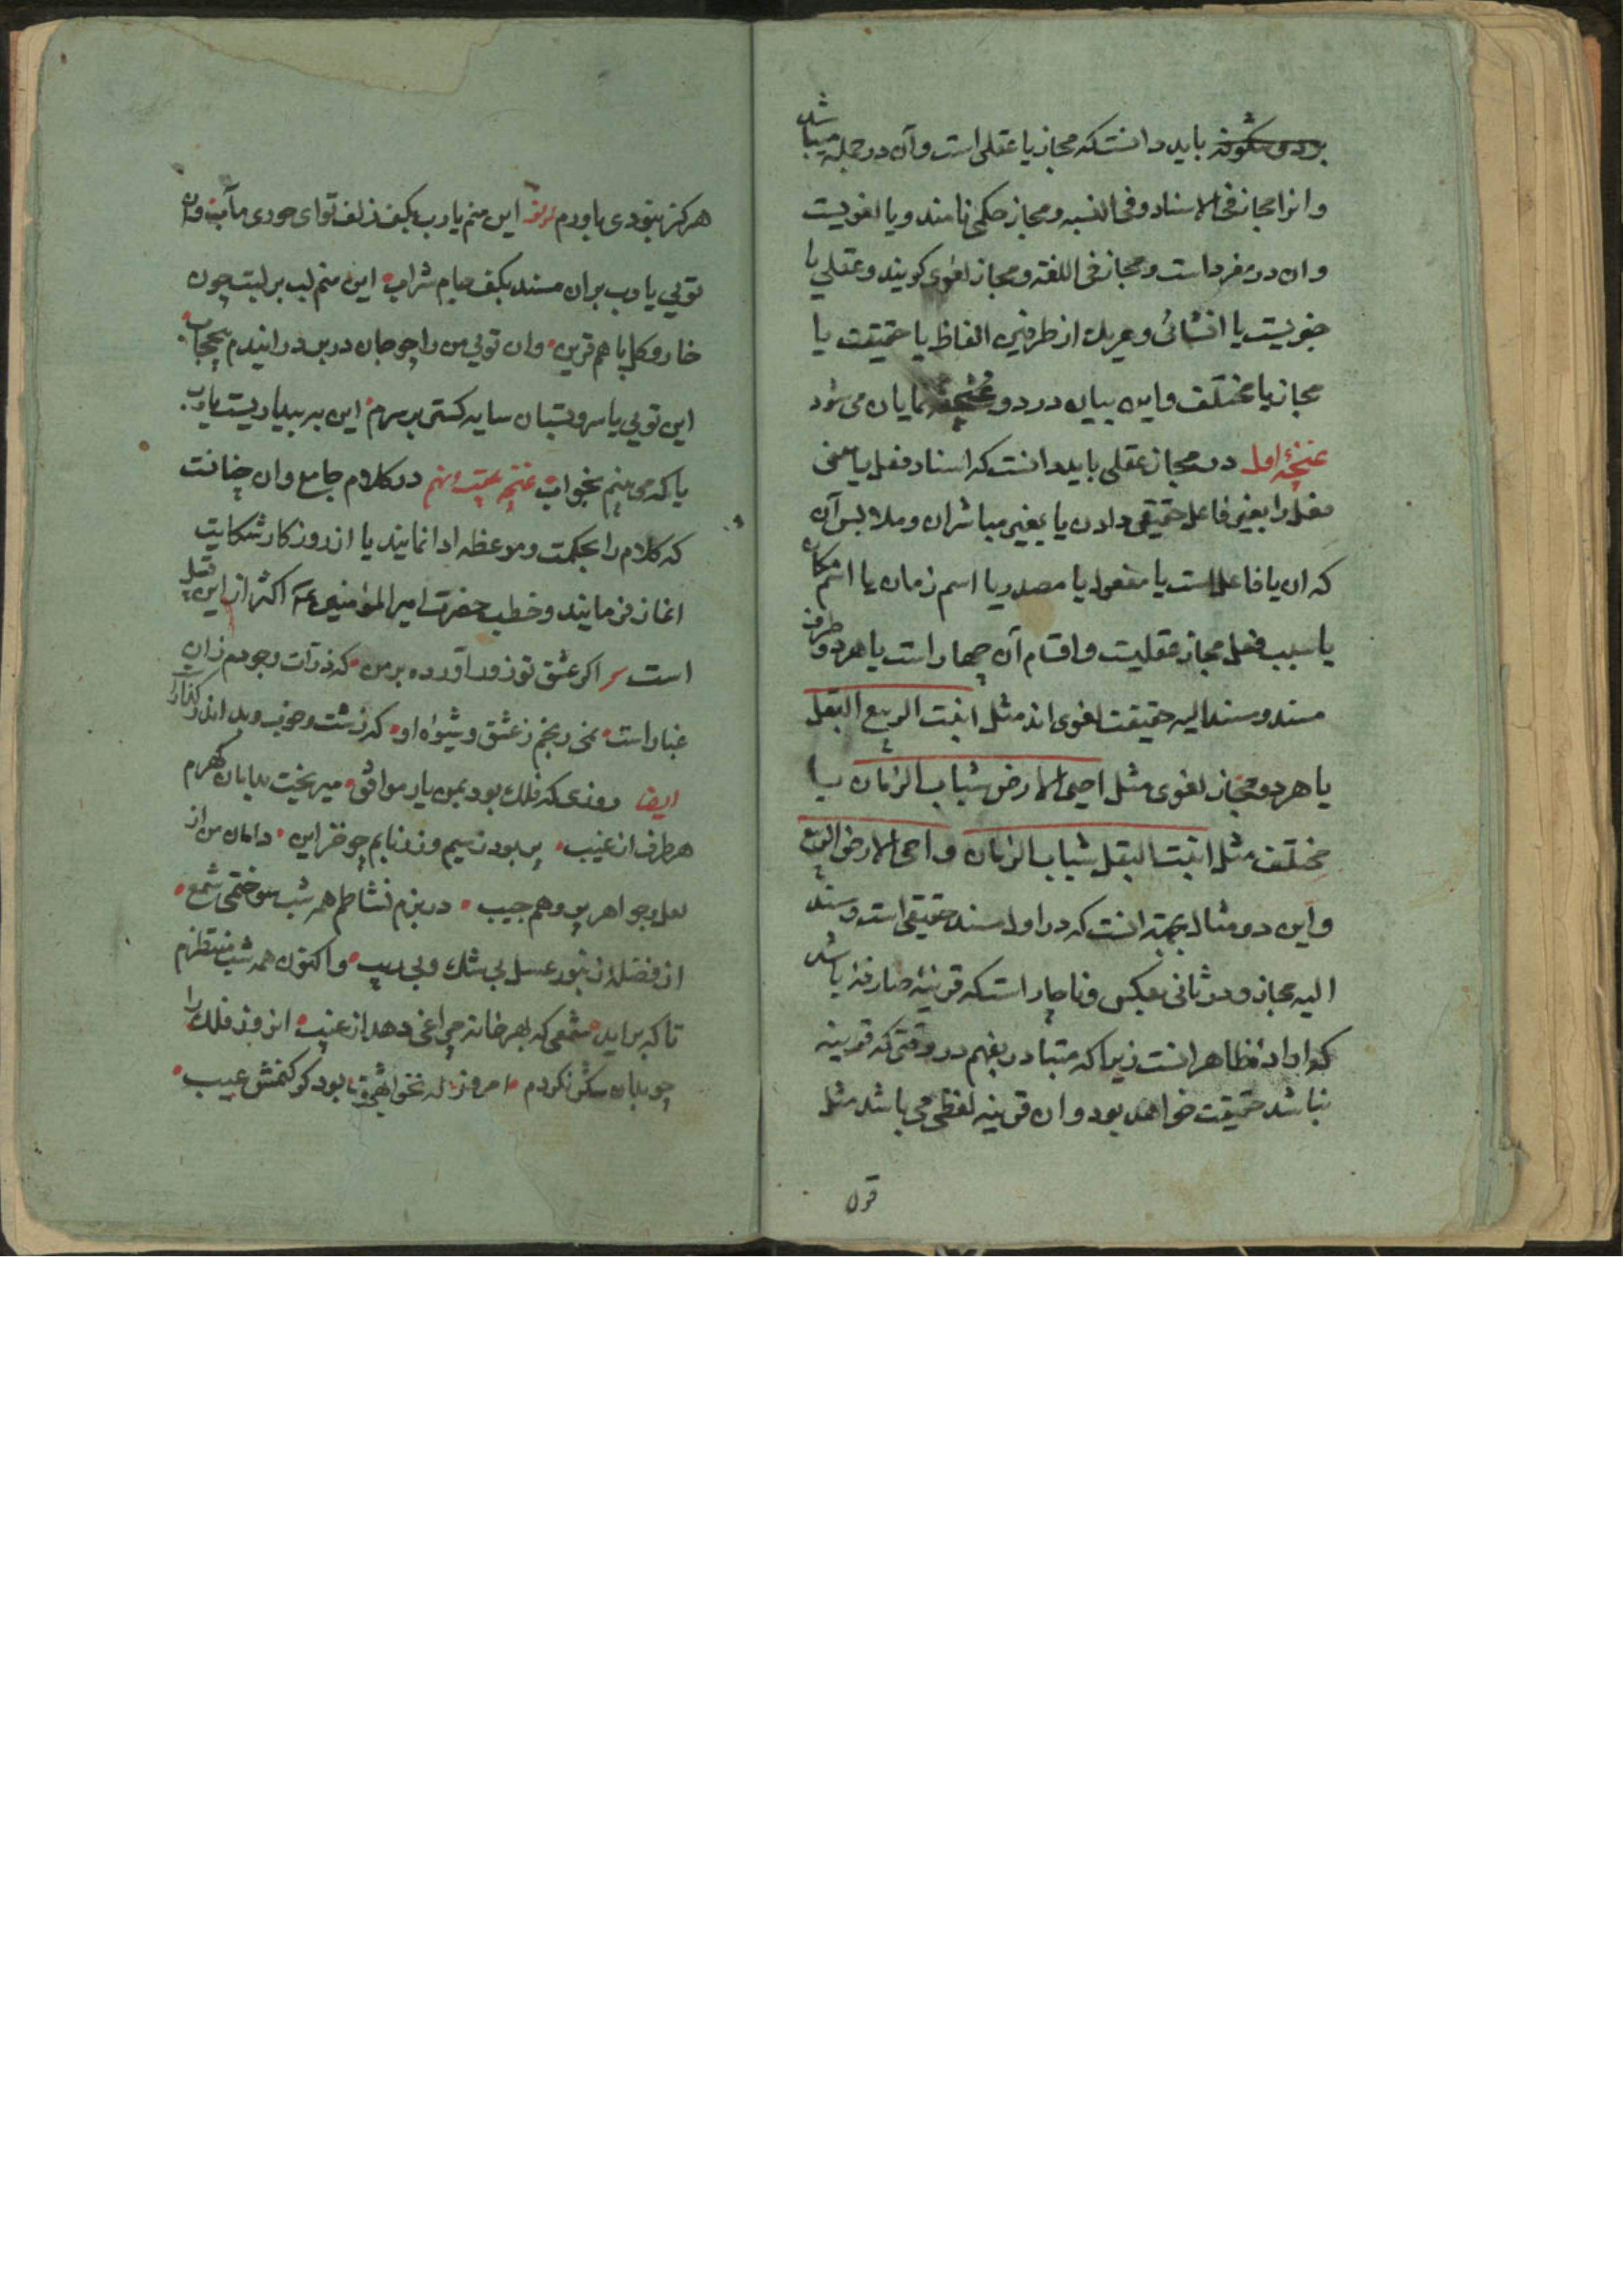 باید دانست که مجاز یا عقلی است و آن در جمله میباشد
و انرا مجاز فی الاسناد و فی النسبه و مجاز حکمی نامند و یا لغویست
و ان در مفرد است و مجاز فی اللغة و مجاز لغوی کویند و عقلی یا
خبریست یا انشائی و هریك از طرفین الفاظ یا حقیقت یا
مجاز یا مختلف و این بیان در دو غنچه نمایان می شود
غنچهٔ اول در مجاز عقلی باید دانست که اسناد فعل یا معنی
فعل را بغیر فاعل حقیقی دادن یا بغیر مباشران و ملابس آن
که ان یا فاعلست یا مفعول یا مصدر یا اسم زمان یا اسم مکان
یا سبب فعل مجاز عقلیت و اقسام آن چهار است یا هر دو طرف
مسند و مسند الیه حقیقت لغوی اند مثل انبت الربیع البقل
یا هر دو مجاز لغوی مثل احیی الارض شباب الزمان یا
مختلف مثل انبت البقل شباب الزمان و احی الارض الربیع
و این دو مثال بجهة انست که در اول مسند حقیقی است و مسند
الیه مجاز و در ثانی بعکس و ناچار است که قرینهٔ صارفه باشد
کو اراد ظاهر انست زیرا که متبادر بفهم در وقتی که قرینه
نباشد حقیقت خواهد بود و ان قرینه لفظی می باشد مثل
قول
هرکز نبودی باورم این منم یا رب بکف زلف تو ای حوری مآب وان
تویی یا رب بران مسند بکف جام شراب این منم لب بر لبت چون
خار و کل با هم قرین وان تویی من را چو جان در بر در ایندم بیحجاب
این تویی یا سرو بستان سایه کستر بر سرم این به بیداریست یارب
یا که می بینم بخواب غنچه بیست ونهم در کلام جامع و ان چنانست
که کلام را بحکمت و موعظه ادا نمایند یا از روزکار شکایت
اغاز فرمایند و خطب حضرت امیر المؤمنین ع اکثر از این قبیل
است اکر عشق تو زور اورده بر من که ذرات وجودم زان
غبار است نمی رنجم ز عشق و شیوه او که زشت و خوب و بد اندر
ایضا روزی که فلك بود بمن یار موافق میریخت بدامان کهرم
هر طرف از غیب پر بود ز سیم و زر نابم چو خزاین دامان من از
لعل و جواهر پر و هم جیب در بزم نشاطم همه شب سوختمی شمع
از فضله زنبور عسل بی شك و بی ریب و اکنون همه شب منتظرم
تا که براید شمعی که بهر خانه چراغی دهد از غیب انروز فلك را
چو بدان شکر نکردم امروز